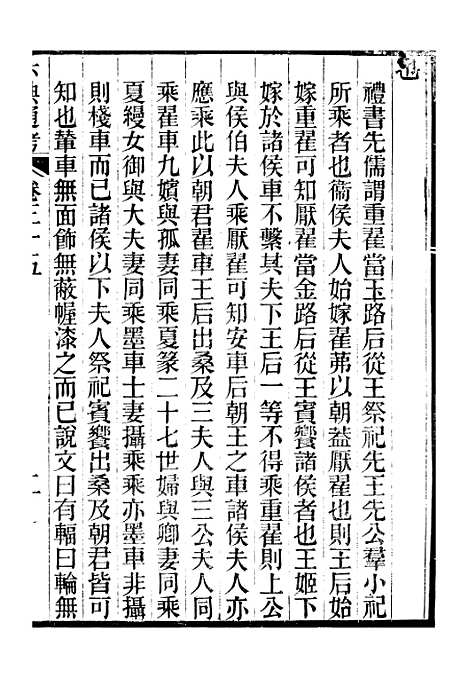 禮書先儒謂重翟當玉路后從王祭祀先王先公羣小祀
所乘者也衞侯夫人始嫁翟茀以朝葢厭翟也則王后始
嫁重翟可知厭翟當金路后從王賓饗諸侯者也王姬下
嫁於諸侯車不繫其夫下王后一等不得乘重翟則上公
與侯伯夫人乘厭翟可知安車后朝王之車諸侯夫人亦
應乘此以朝君翟車王后出桑及三夫人與三公夫人同
乘翟車九嬪與孤妻同乘夏篆二十七世婦與卿妻同乘
夏縵女御與大夫妻同乘墨車士妻攝乘乘亦墨車非攝
則棧車而已諸侯以下夫人祭祀賓饗出桑及朝君皆可
知也輦車無面飾無蔽幄漆之而已說文曰有輻曰輪無
六典通考
卷三十五